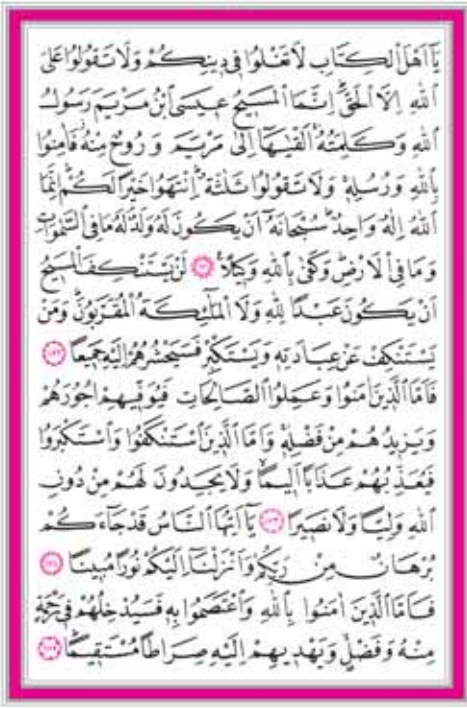 يَآ اَهْلَ الْكِتَابِ لَا تَغْلُوا فٖى دٖينِكُمْ وَلَا تَقُولُوا عَلَى
اللّٰهِ اِلَّا الْحَقَّ اِنَّمَا الْمَسٖيحُ عٖيسَى ابْنُ مَرْيَمَ رَسُولُ
اللّٰهِ وَكَلِمَتُهُ اَلْقٰيهَٓا اِلٰى مَرْيَمَ وَرُوحٌ مِنْهُ فَاٰمِنُوا
بِاللّٰهِ وَرُسُلِهٖ وَلَا تَقُولُوا ثَلٰثَةٌ اِنْتَهُوا خَيْرًا لَكُمْ اِنَّمَا
اللّٰهُ اِلٰهٌ وَاحِدٌ سُبْحَانَهُٓ اَنْ يَكُونَ لَهُ وَلَدٌ لَهُ مَا فِى السَّمٰوَاتِ
وَمَا فِى الْاَرْضِ وَكَفٰى بِاللّٰهِ وَكٖيلًا ﴿١٧١﴾ لَنْ يَسْتَنْكِفَ الْمَسٖيحُ
اَنْ يَكُونَ عَبْدًا لِلّٰهِ وَلَا الْمَلٰٓئِكَةُ الْمُقَرَّبُونَ وَمَنْ
يَسْتَنْكِفْ عَنْ عِبَادَتِهٖ وَيَسْتَكْبِرْ فَسَيَحْشُرُهُمْ اِلَيْهِ جَمٖيعًا ﴿١٧٢﴾
فَاَمَّا الَّذٖينَ اٰمَنُوا وَعَمِلُوا الصَّالِحَاتِ فَيُوَفّٖيهِمْ اُجُورَهُمْ
وَيَزٖيدُهُمْ مِنْ فَضْلِهٖ وَاَمَّا الَّذٖينَ اسْتَنْكَفُوا وَاسْتَكْبَرُوا
فَيُعَذِّبُهُمْ عَذَابًا اَلٖيمًا وَلَا يَجِدُونَ لَهُمْ مِنْ دُونِ
اللّٰهِ وَلِيًّا وَلَا نَصٖيرًا ﴿١٧٣﴾ يَآ اَيُّهَا النَّاسُ قَدْ جَٓاءَكُمْ
بُرْهَانٌ مِنْ رَبِّكُمْ وَاَنْزَلْنَٓا اِلَيْكُمْ نُورًا مُبٖينًا ﴿١٧٤﴾
فَاَمَّا الَّذٖينَ اٰمَنُوا بِاللّٰهِ وَاعْتَصَمُوا بِهٖ فَسَيُدْخِلُهُمْ فٖى رَحْمَةٍ
مِنْهُ وَفَضْلٍ وَيَهْدٖيهِمْ اِلَيْهِ صِرَاطًا مُسْتَقٖيمًا ﴿١٧٥﴾